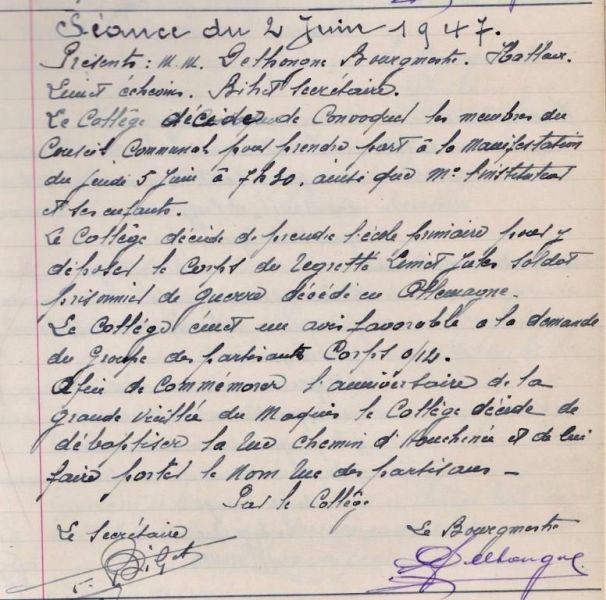 Séance du 2 Juin 1947.
Présents: M.M. Delhongne Bourgmestre. Hatleux.
Limet échevins. Bihet Secrétaire.
Le Collège décide de Convoquer les membres du
Conseil Communal pour prendre part à la Manifestation
du jeudi 5 Juin à 7h30. ainsi que Mr l'instituteur
et les enfants.
Le Collège décide de prendre l'école primaire pour y
déposer le Corps du regretté Limet Jules Soldat
prisonnier de guerre décédé en Allemagne.
Le Collège émet un avis favorable a la demande
du Groupe des partisants Corps 0/12.
Afin de Commémorer l'anniversaire de la
grande veillée du Maquis le Collège décide de
débaptiser la rue chemin d'Houchenée et de lui
faire porter le Nom rue des partisans -
Par le Collège
Le Secrétaire Le Bourgmestre
Bihet Delhongne